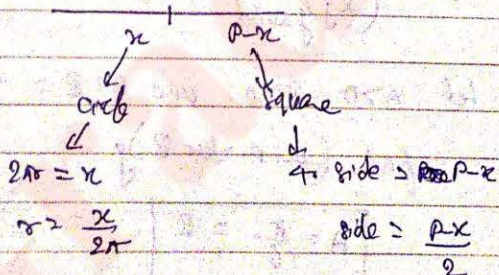 x P-x
Circle Square
2πr = x 4 × side = P-x
r = x/2π side = P-x/2